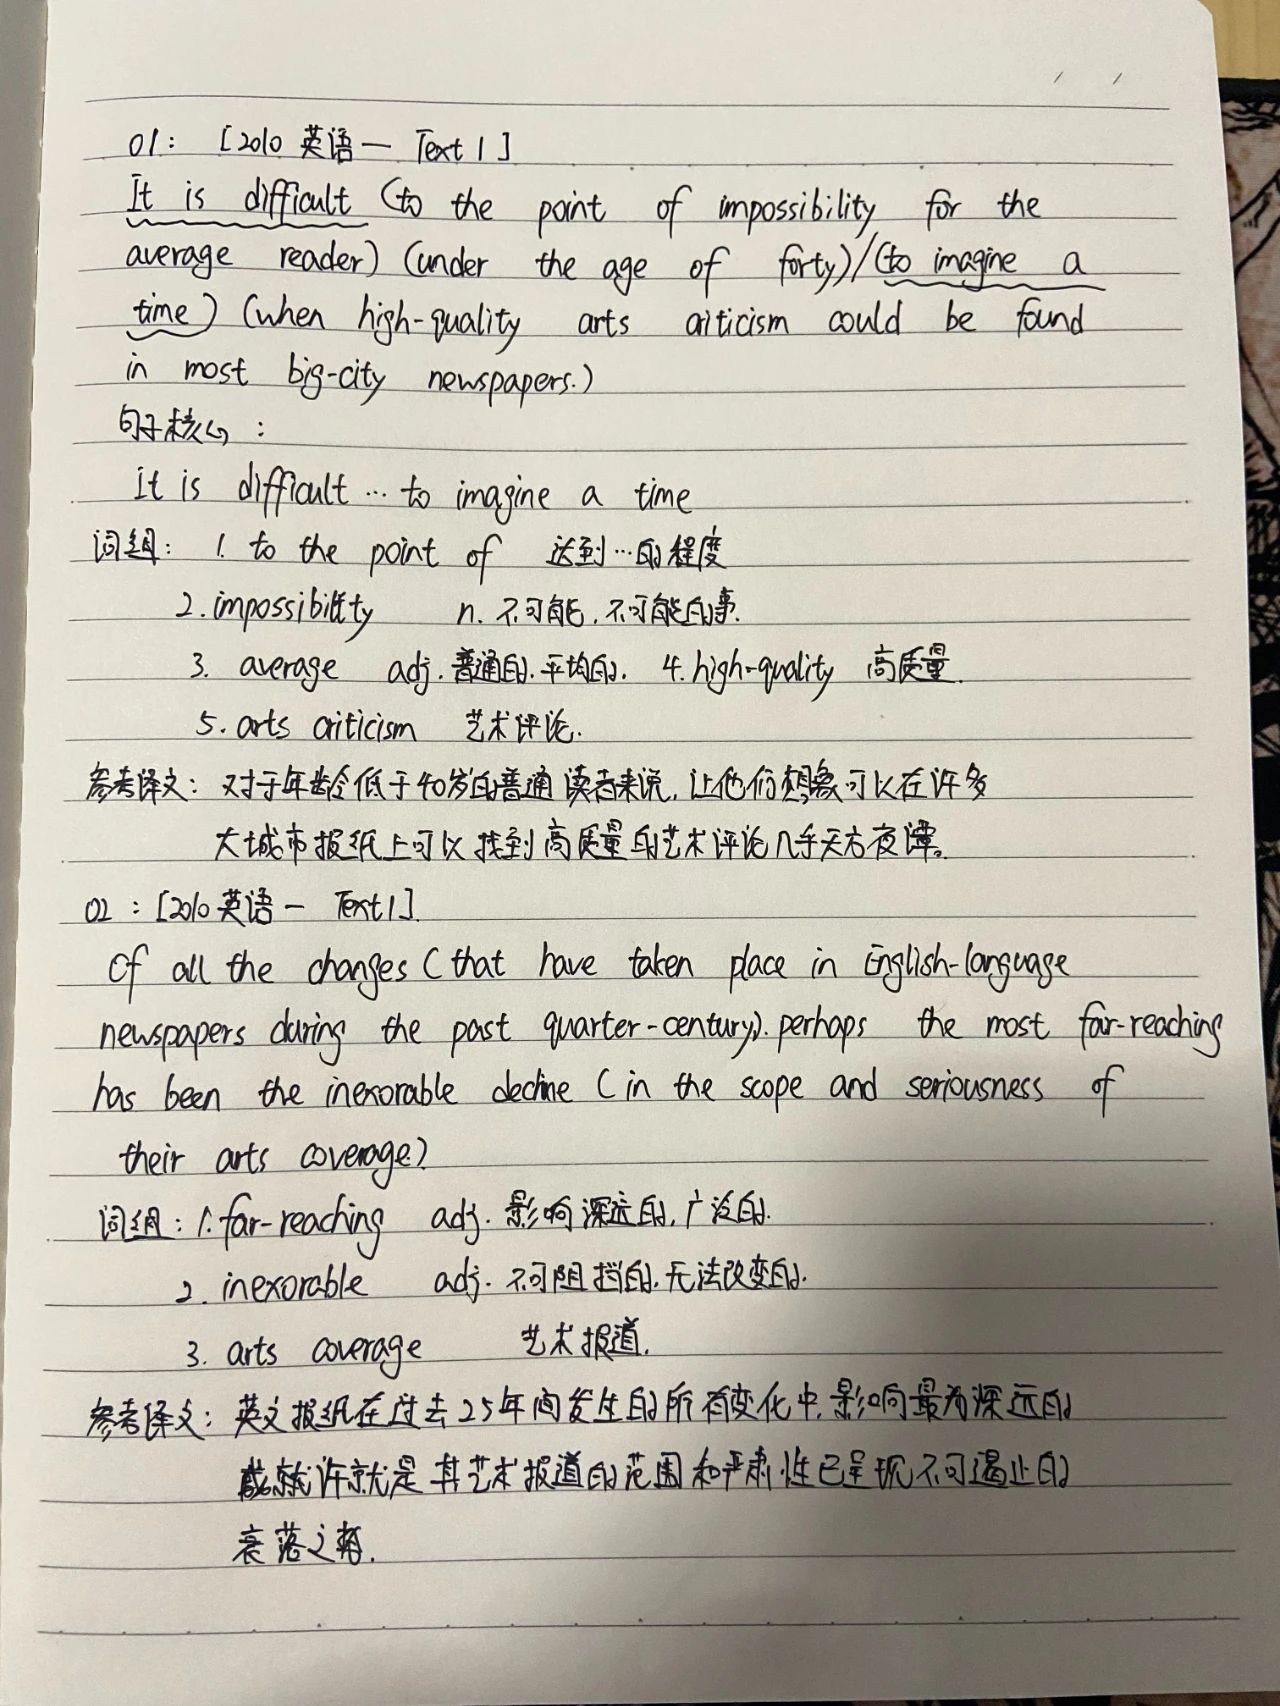 01: [2010 英语一 Text 1]
It is difficult (to the point of impossibility for the
average reader) (under the age of forty)/(to imagine a
time) (when high-quality arts criticism could be found
in most big-city newspapers.)
句子核心:
It is difficult … to imagine a time
词组: 1. to the point of 达到…的程度
2. impossibility n. 不可能, 不可能的事.
3. average adj. 普通的. 平均的. 4. high-quality 高质量.
5. arts criticism 艺术评论.
参考译文: 对于年龄低于40岁的普通读者来说, 让他们想象可以在许多
大城市报纸上可以找到高质量的艺术评论几乎天方夜谭。
02: [2010 英语一 Text 1].
Of all the changes (that have taken place in English-language
newspapers during the past quarter-century). perhaps the most far-reaching
has been the inexorable decline (in the scope and seriousness of
their arts coverage)
词组: 1. far-reaching adj. 影响深远的, 广泛的.
2. inexorable adj. 不可阻挡的. 无法改变的.
3. arts coverage 艺术报道.
参考译文: 英文报纸在过去25年间发生的所有变化中, 影响最为深远的
许就是其艺术报道的范围和严肃性已呈现不可遏止的
衰落之